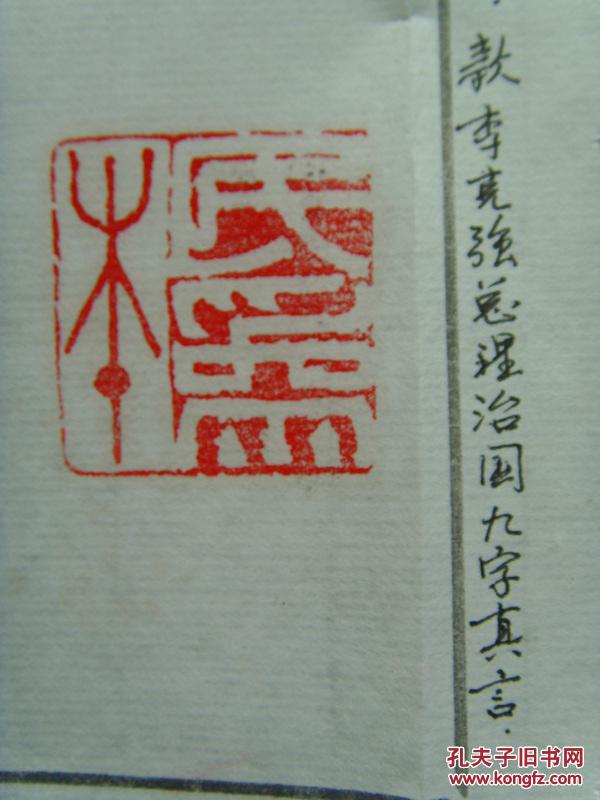 款李克強总理治国九字真言.
民為本
孔夫子旧书网
www.kongfz.com